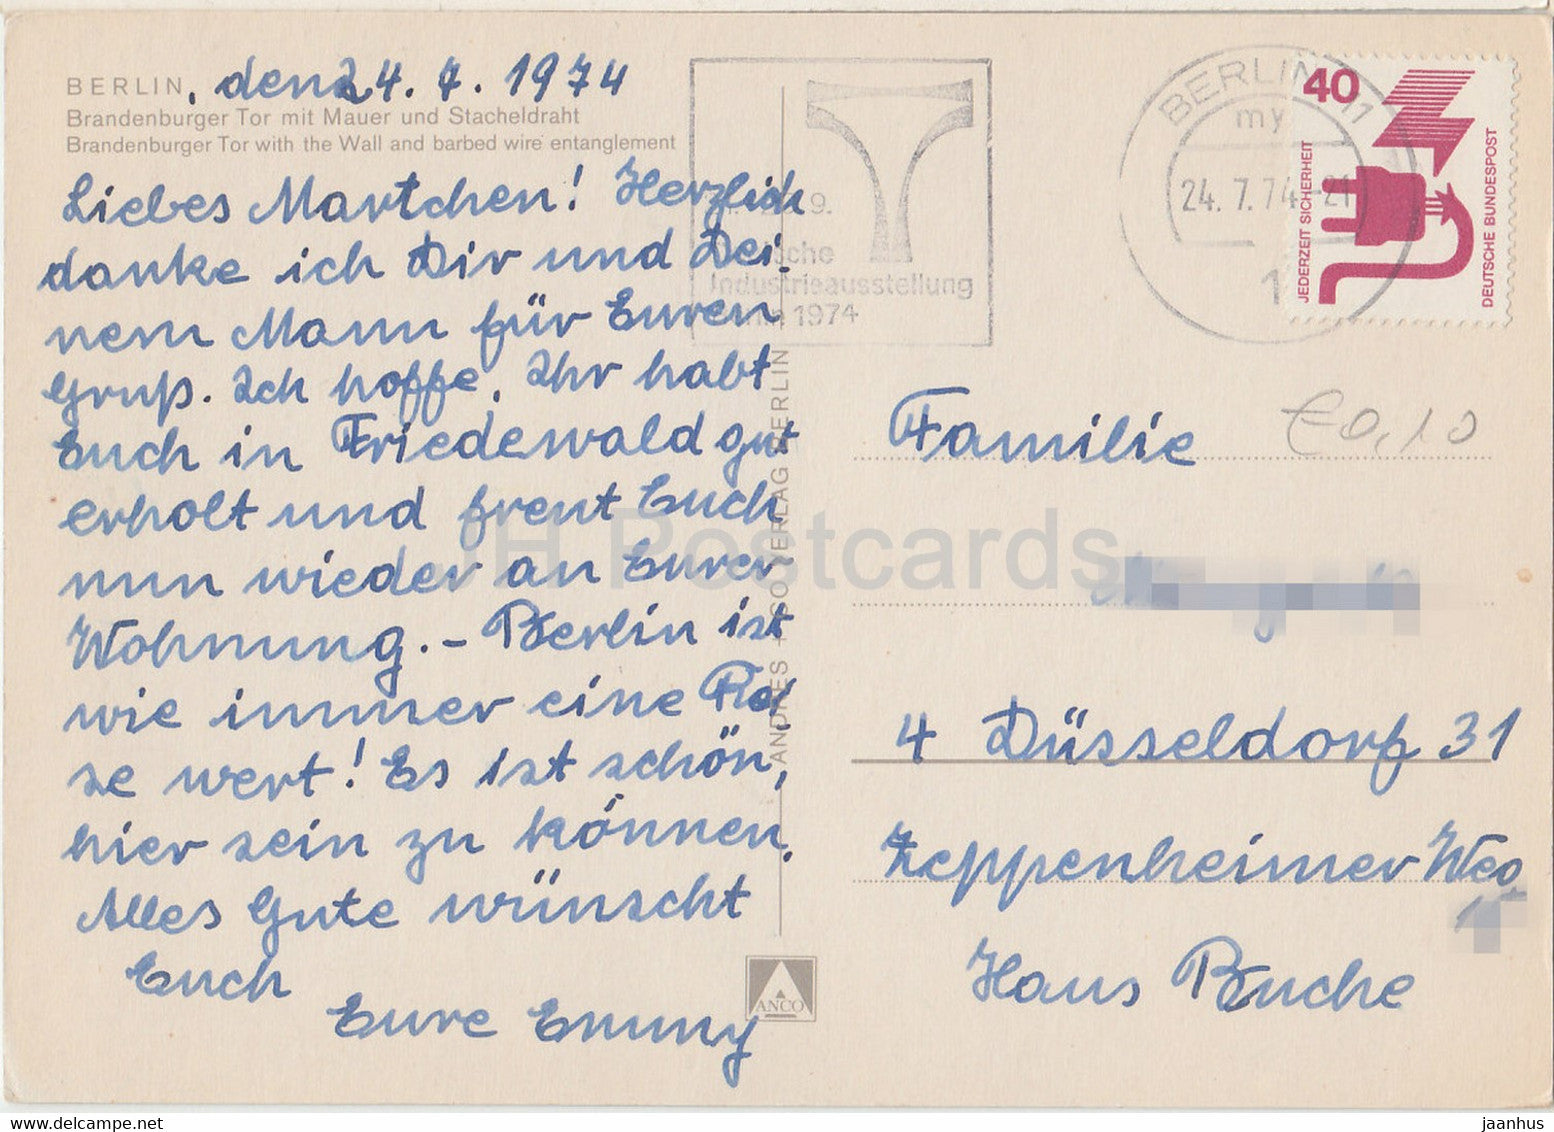 BERLIN, den 24. 7. 1974
Brandenburger Tor mit Mauer und Stacheldraht
Brandenburger Tor with the Wall and barbed wire entanglement
Liebes Martchen! Herzlich
danke ich Dir und Dei-
nem Mann für Euren
Gruß. Ich hoffe, Ihr habt
Euch in Friedewald gut
erholt und freut Euch
nun wieder an Eurer
Wohnung. - Berlin ist
wie immer eine Rei
se wert! Es ist schön,
hier sein zu können.
Alles Gute wünscht
Euch
Eure Emmy
ANDRES + CO VERLAG BERLIN
ANCO
Industrieausstellung
1974
BERLIN 11
my
24.7.74-21
1
40
JEDERZEIT SICHERHEIT
DEUTSCHE BUNDESPOST
€0,10
Familie
4 Düsseldorf 31
Zeppenheimer Weg
Haus Buche
JH Postcards
https://jhpostcards.com
jaanhus